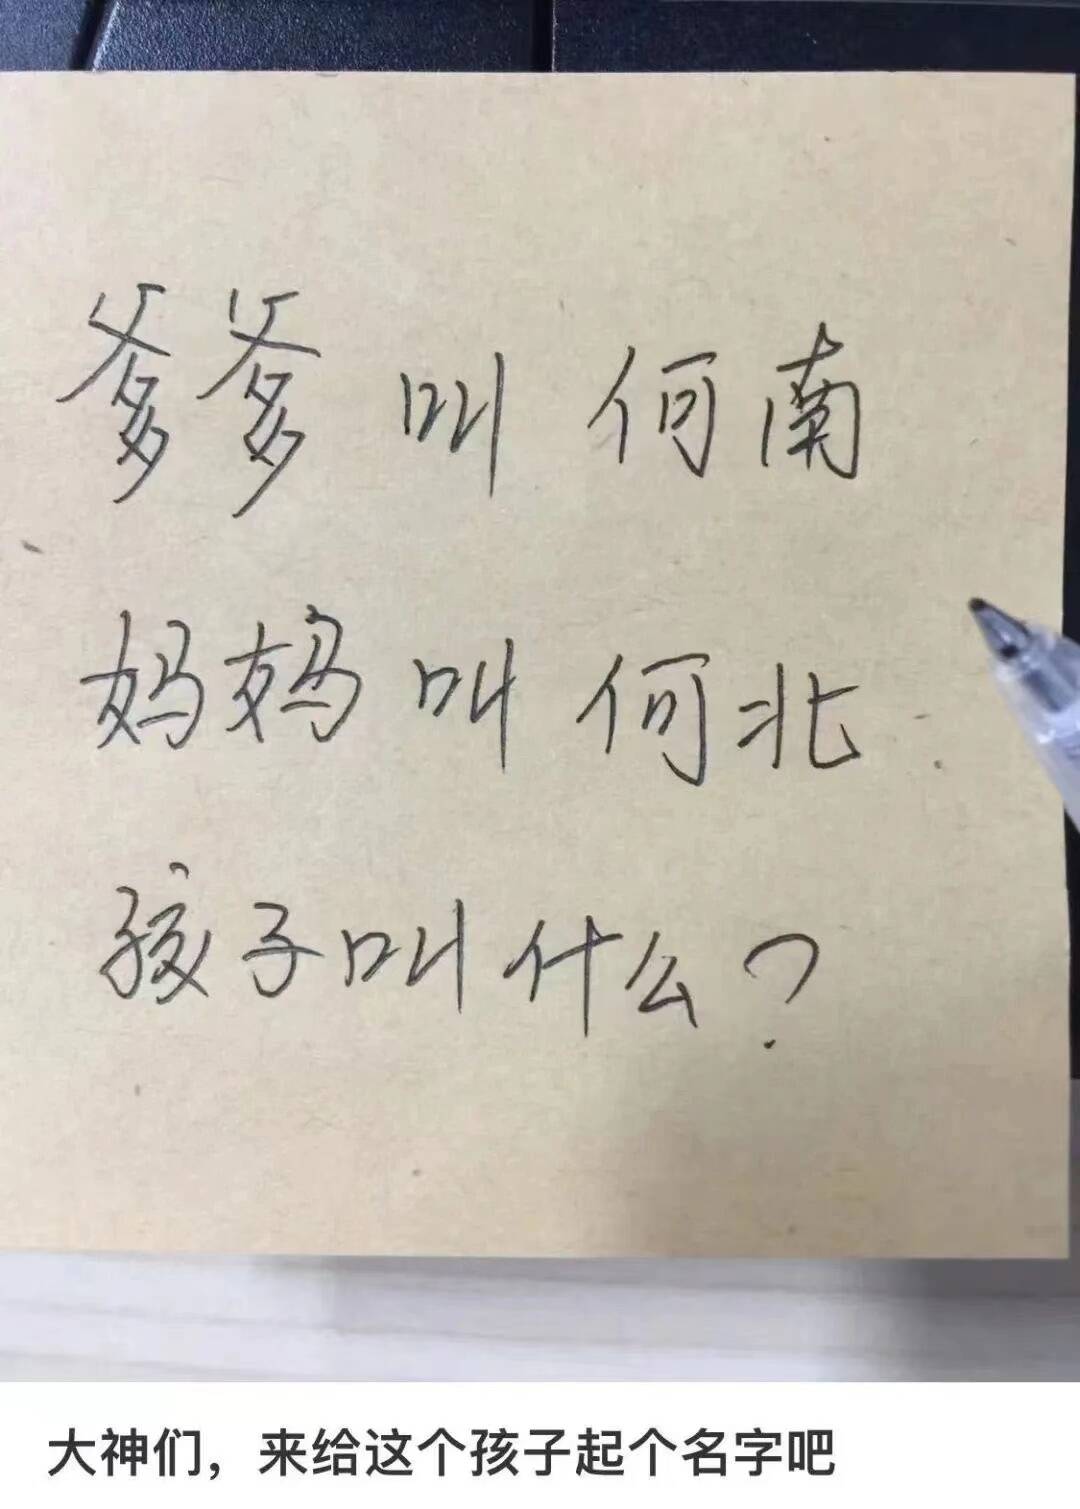 爹爹叫何南
妈妈叫何北
孩子叫什么?
大神们，来给这个孩子起个名字吧